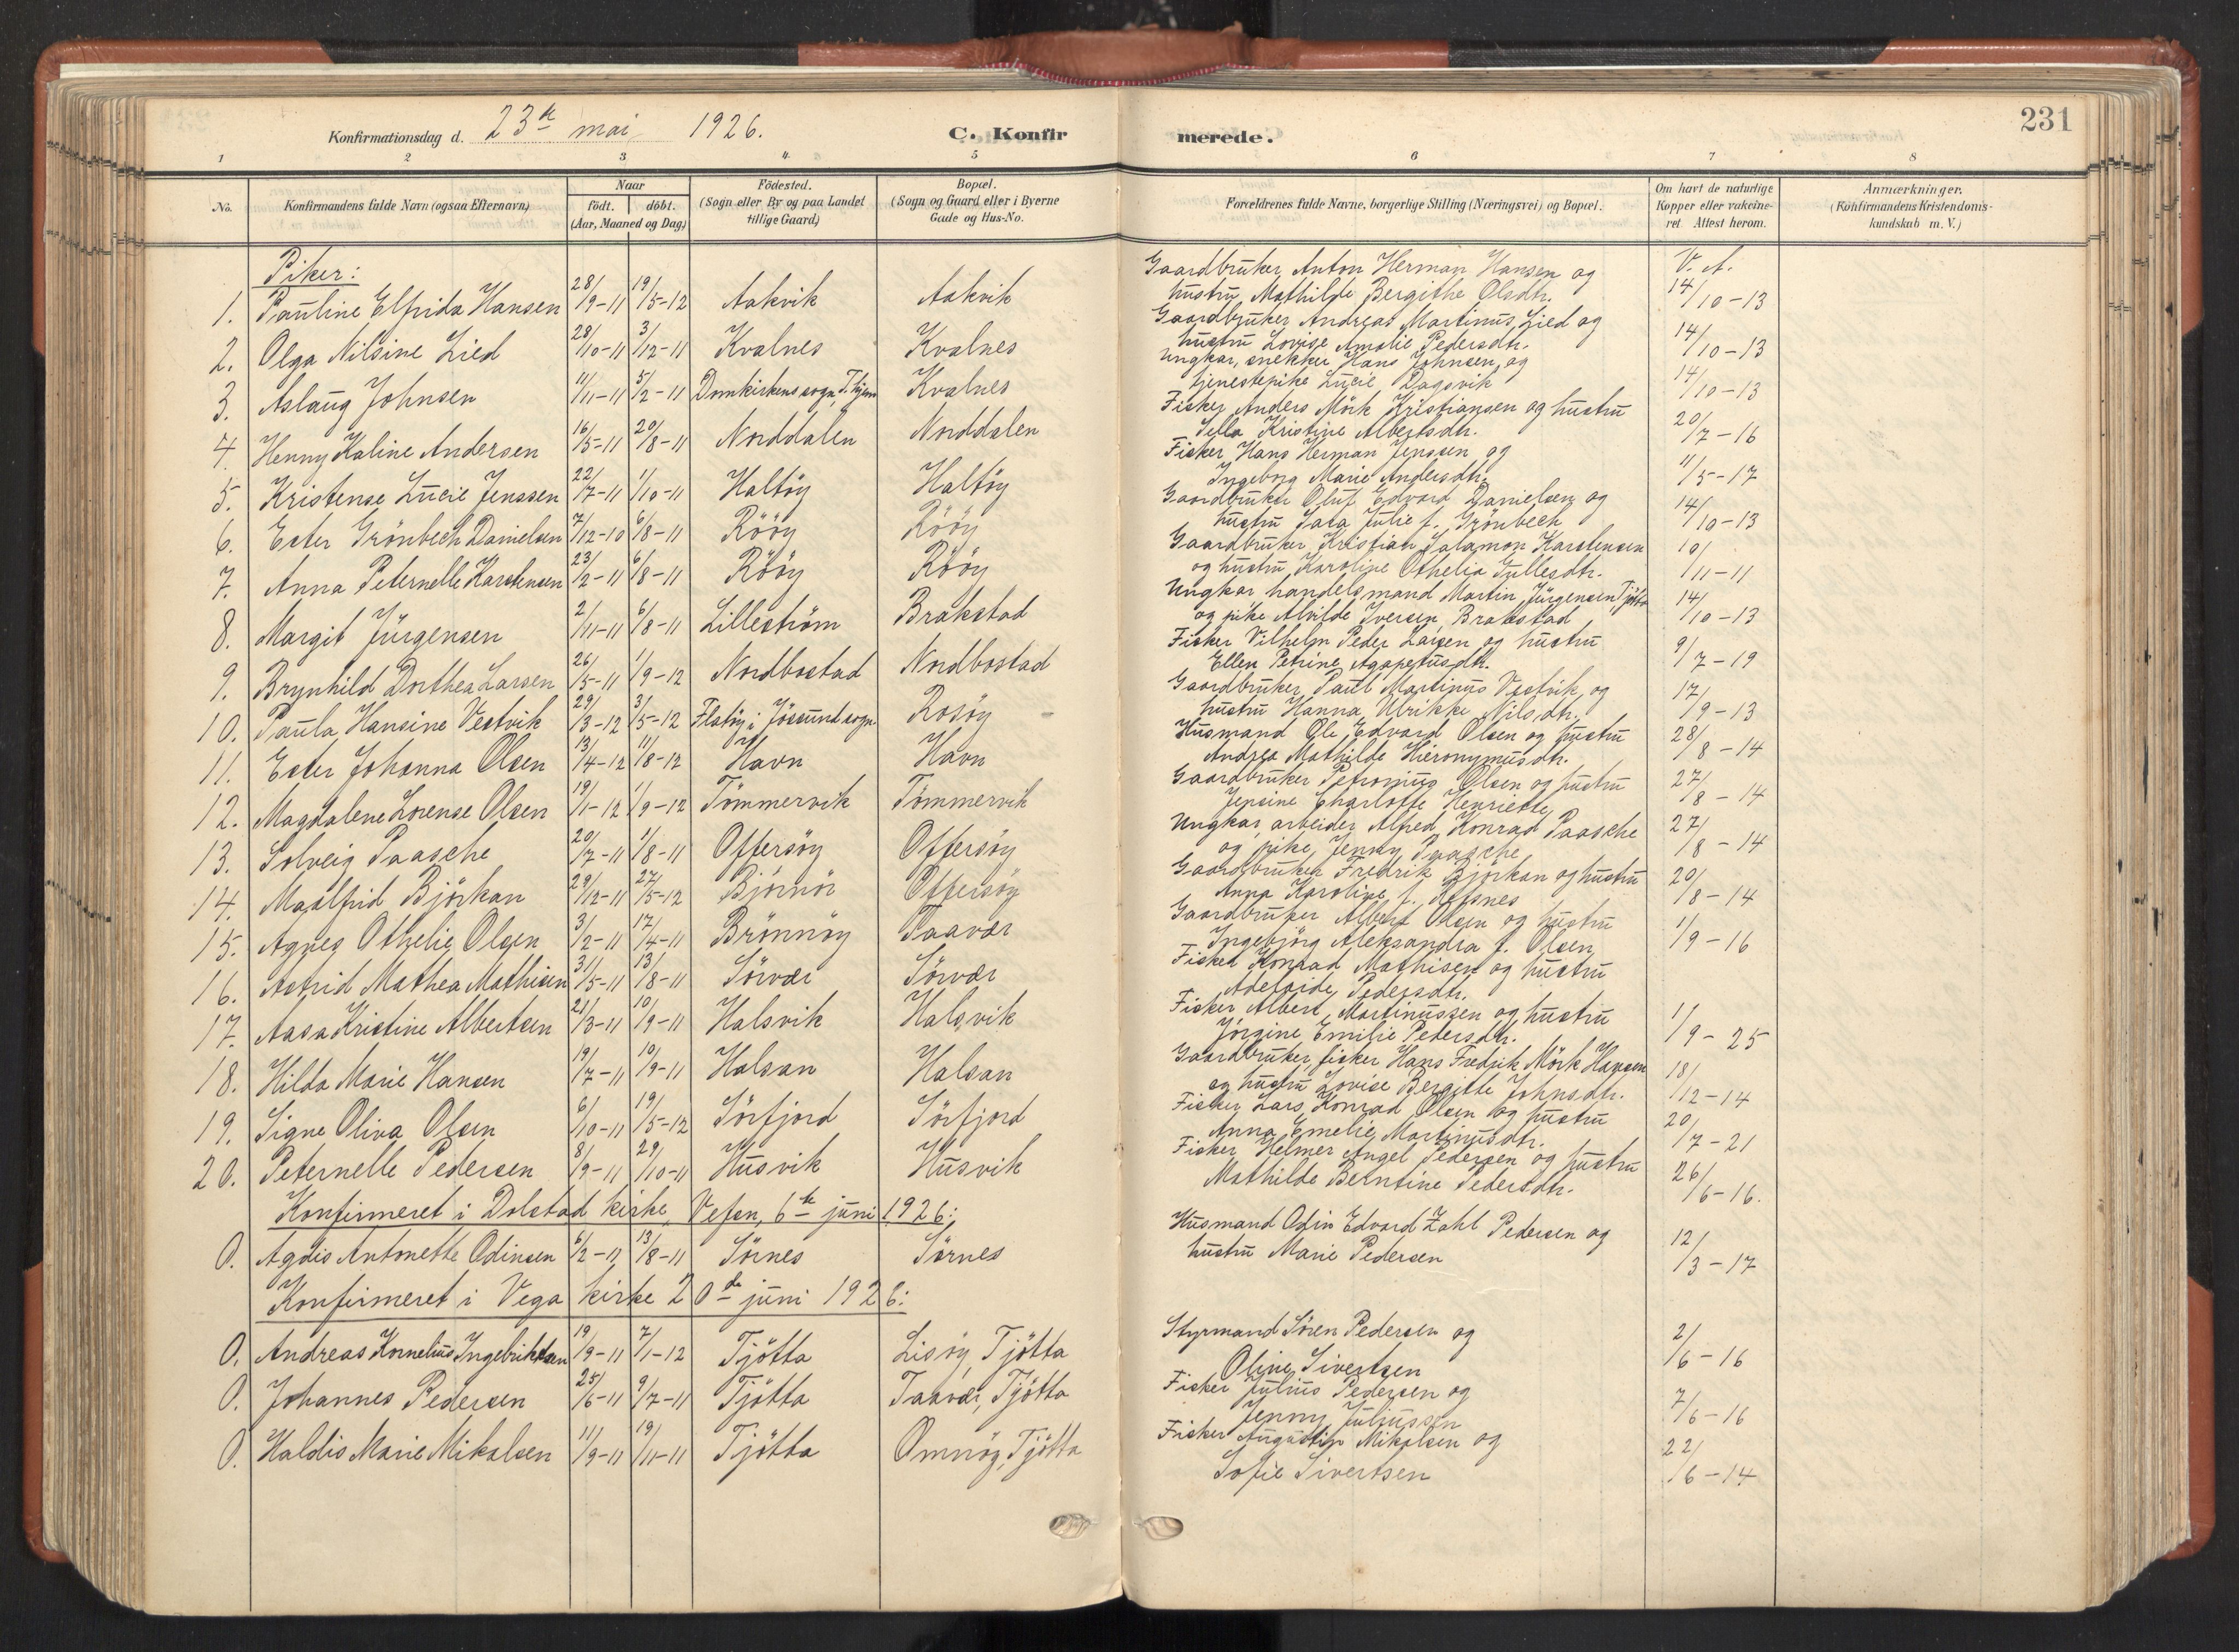 Konfirmationsdag d. 23de mai 1926. C. Konfirmerede. 231
1 2 3 4 5 6 7 8
No. Konfirmandens fulde Navn (ogsaa Efternavn) Naar födt. döbt. (Aar, Maaned og Dag) Födested. (Sogn eller By og paa Landet tillige Gaard) Bopæl. (Sogn og Gaard eller i Byerne Gade og Hus-No. Forældrenes fulde Navne, borgerlige Stilling (Næringsvei) og Bopæl. Om havt de naturlige Kopper eller vakcineret. Attest herom. Anmærkninger. (Konfirmandens Kristendomskundskab m. V.)
Piker: V. A.
1. Pauline Elfrida Hansen 28/9-11 19/5-12 Aakvik Aakvik Gaardbruker Anton Herman Hansen og hustru Mathilde Bergithe Olsdtr. 14/10-13
2. Olga Nilsine Lied 28/10-11 3/12-11 Kvalnes Kvalnes Gaardbruker Andreas Martinus Lied og hustru Lovise Amalie Pedersdtr. 14/10-13
3. Aslaug Johnsen 11/11-11 5/2-11 Domkirkens sogn, T.hjem Kvalnes Ungkar, snekker Hans Johnsen, og tjenestepike Lucie Dagsvik 14/10-13
4. Henny Kaline Andersen 16/5-11 20/8-11 Norddalen Norddalen Fisker Anders Mörk Kristiansen og hustru Sella Kristine Albertsdtr. 20/7-16
5. Kristense Lucie Jenssen 22/7-11 1/10-11 Haltöy Haltöy Fisker Hans Herman Jenssen og Ingeborg Marie Andersdtr. 11/5-17
6. Ester Grönbech Danielsen 7/12-10 6/8-11 Rööy Rööy Gaardbruker Oluf Edvard Danielsen og hustru Sara Julie f. Grönbech 14/10-13
7. Anna Peternelle Karstensen 23/2-11 6/8-11 Rööy Rööy Gaardbruker Kristian Salamon Karstensen og hustru Karoline Othelia Tullesdtr. 10/11-11
8. Margit Jürgensen 2/11-11 6/8-11 Lilleström Brakstad Ungkar handelsmand Martin Jürgensen Tjötta og pike Alvilde Iversen, Brakstad 14/10-13
9. Brynhild Dorthea Larsen 26/5-11 1/9-12 Nordbostad Nordbostad Fisker Vilhelm Peder Larsen og hustru Ellen Petrine Agapetusdtr. 9/7-19
10. Paula Hansine Vestvik 29/3-12 3/5-12 Flatöy i Jössund sogn Rosöy Gaardbruker Paul Martinus Vestvik, og hustru Hanna Ulrikke Nilsdtr. 17/9-13
11. Ester Johanna Olsen 13/4-12 11/8-12 Havn Havn Husmand Ole Edvard Olsen og hustru Andrea Mathilde Hieronymusdtr. 28/8-14
12. Magdalene Lorense Olsen 19/1-12 1/9-12 Tömmervik Tömmervik Gaardbruker Petronius Olsen og hustru Jensine Charlotte Henriette 27/8-14
13. Solveig Paasche 20/7-11 1/8-11 Offersöy Offersöy Ungkar, arbeider Alfred Konrad Paasche og pike Jenny Paasche 27/8-14
14. Maalfrid Björkan 29/12-11 27/5-12 Björnör Offersöy Gaardbruker Fredrik Björkan og hustru Anna Karoline f. Refsnes 20/8-14
15. Agnes Othelie Olsen 3/2-11 17/4-11 Brönnöy Taavær Gaardbruker Albert Olsen og hustru Ingebjörg Aleksandra f. Olsen 1/9-16
16. Astrid Mathea Mathisen 31/5-11 13/8-11 Sörvær Sörvær Fisker Konrad Mathisen og hustru Adelaide Pedersdtr.
17. Aasa Kristine Albertsen 21/3-11 10/9-11 Halsvik Halsvik Fisker Albert Martinussen og hustru Jörgine Emilie Pedersdtr. 1/9-25
18. Hilda Marie Hansen 19/7-11 10/9-11 Halsan Halsan Gaardbruker, fisker Hans Fredrik Mörk Hansen og hustru Lovise Bergitte Johnsdtr. 18/12-14
19. Signe Oliva Olsen 6/10-11 19/5-12 Sörfjord Sörfjord Fisker Lars Konrad Olsen og hustru Anna Emelie Martinusdtr. 20/7-21
20. Peternelle Pedersen 8/9-11 29/10-11 Husvik Husvik Fisker Helmer Angel Pedersen og hustru Mathilde Berntine Pedersdtr. 26/6-16.
Konfirmeret i Dolstad kirke, Vefsn, 6te juni 1926:
0. Agdis Antonette Odinsen 6/2-11 13/8-11 Sörnes Sörnes Husmand Odin Edvard Zahl Pedersen og hustru Marie Pedersen 12/3-17
Konfirmeret i Vega kirke 20de juni 1926:
0. Andreas Kornelius Ingebriktsen 19/9-11 7/1-12 Tjötta Lisöy, Tjötta Styrmand Sören Pedersen og Oline Sivertsen 2/6-16
0. Johannes Pedersen 25/6-11 9/7-11 Tjötta Taavær, Tjötta Fisker Julius Pedersen og Jenny Juliussen 7/6-16
0. Haldis Marie Mikalsen 11/9-11 19/11-11 Tjötta Omnöy, Tjötta Fisker Augustin Mikalsen og Sofie Sivertsen 22/6-14